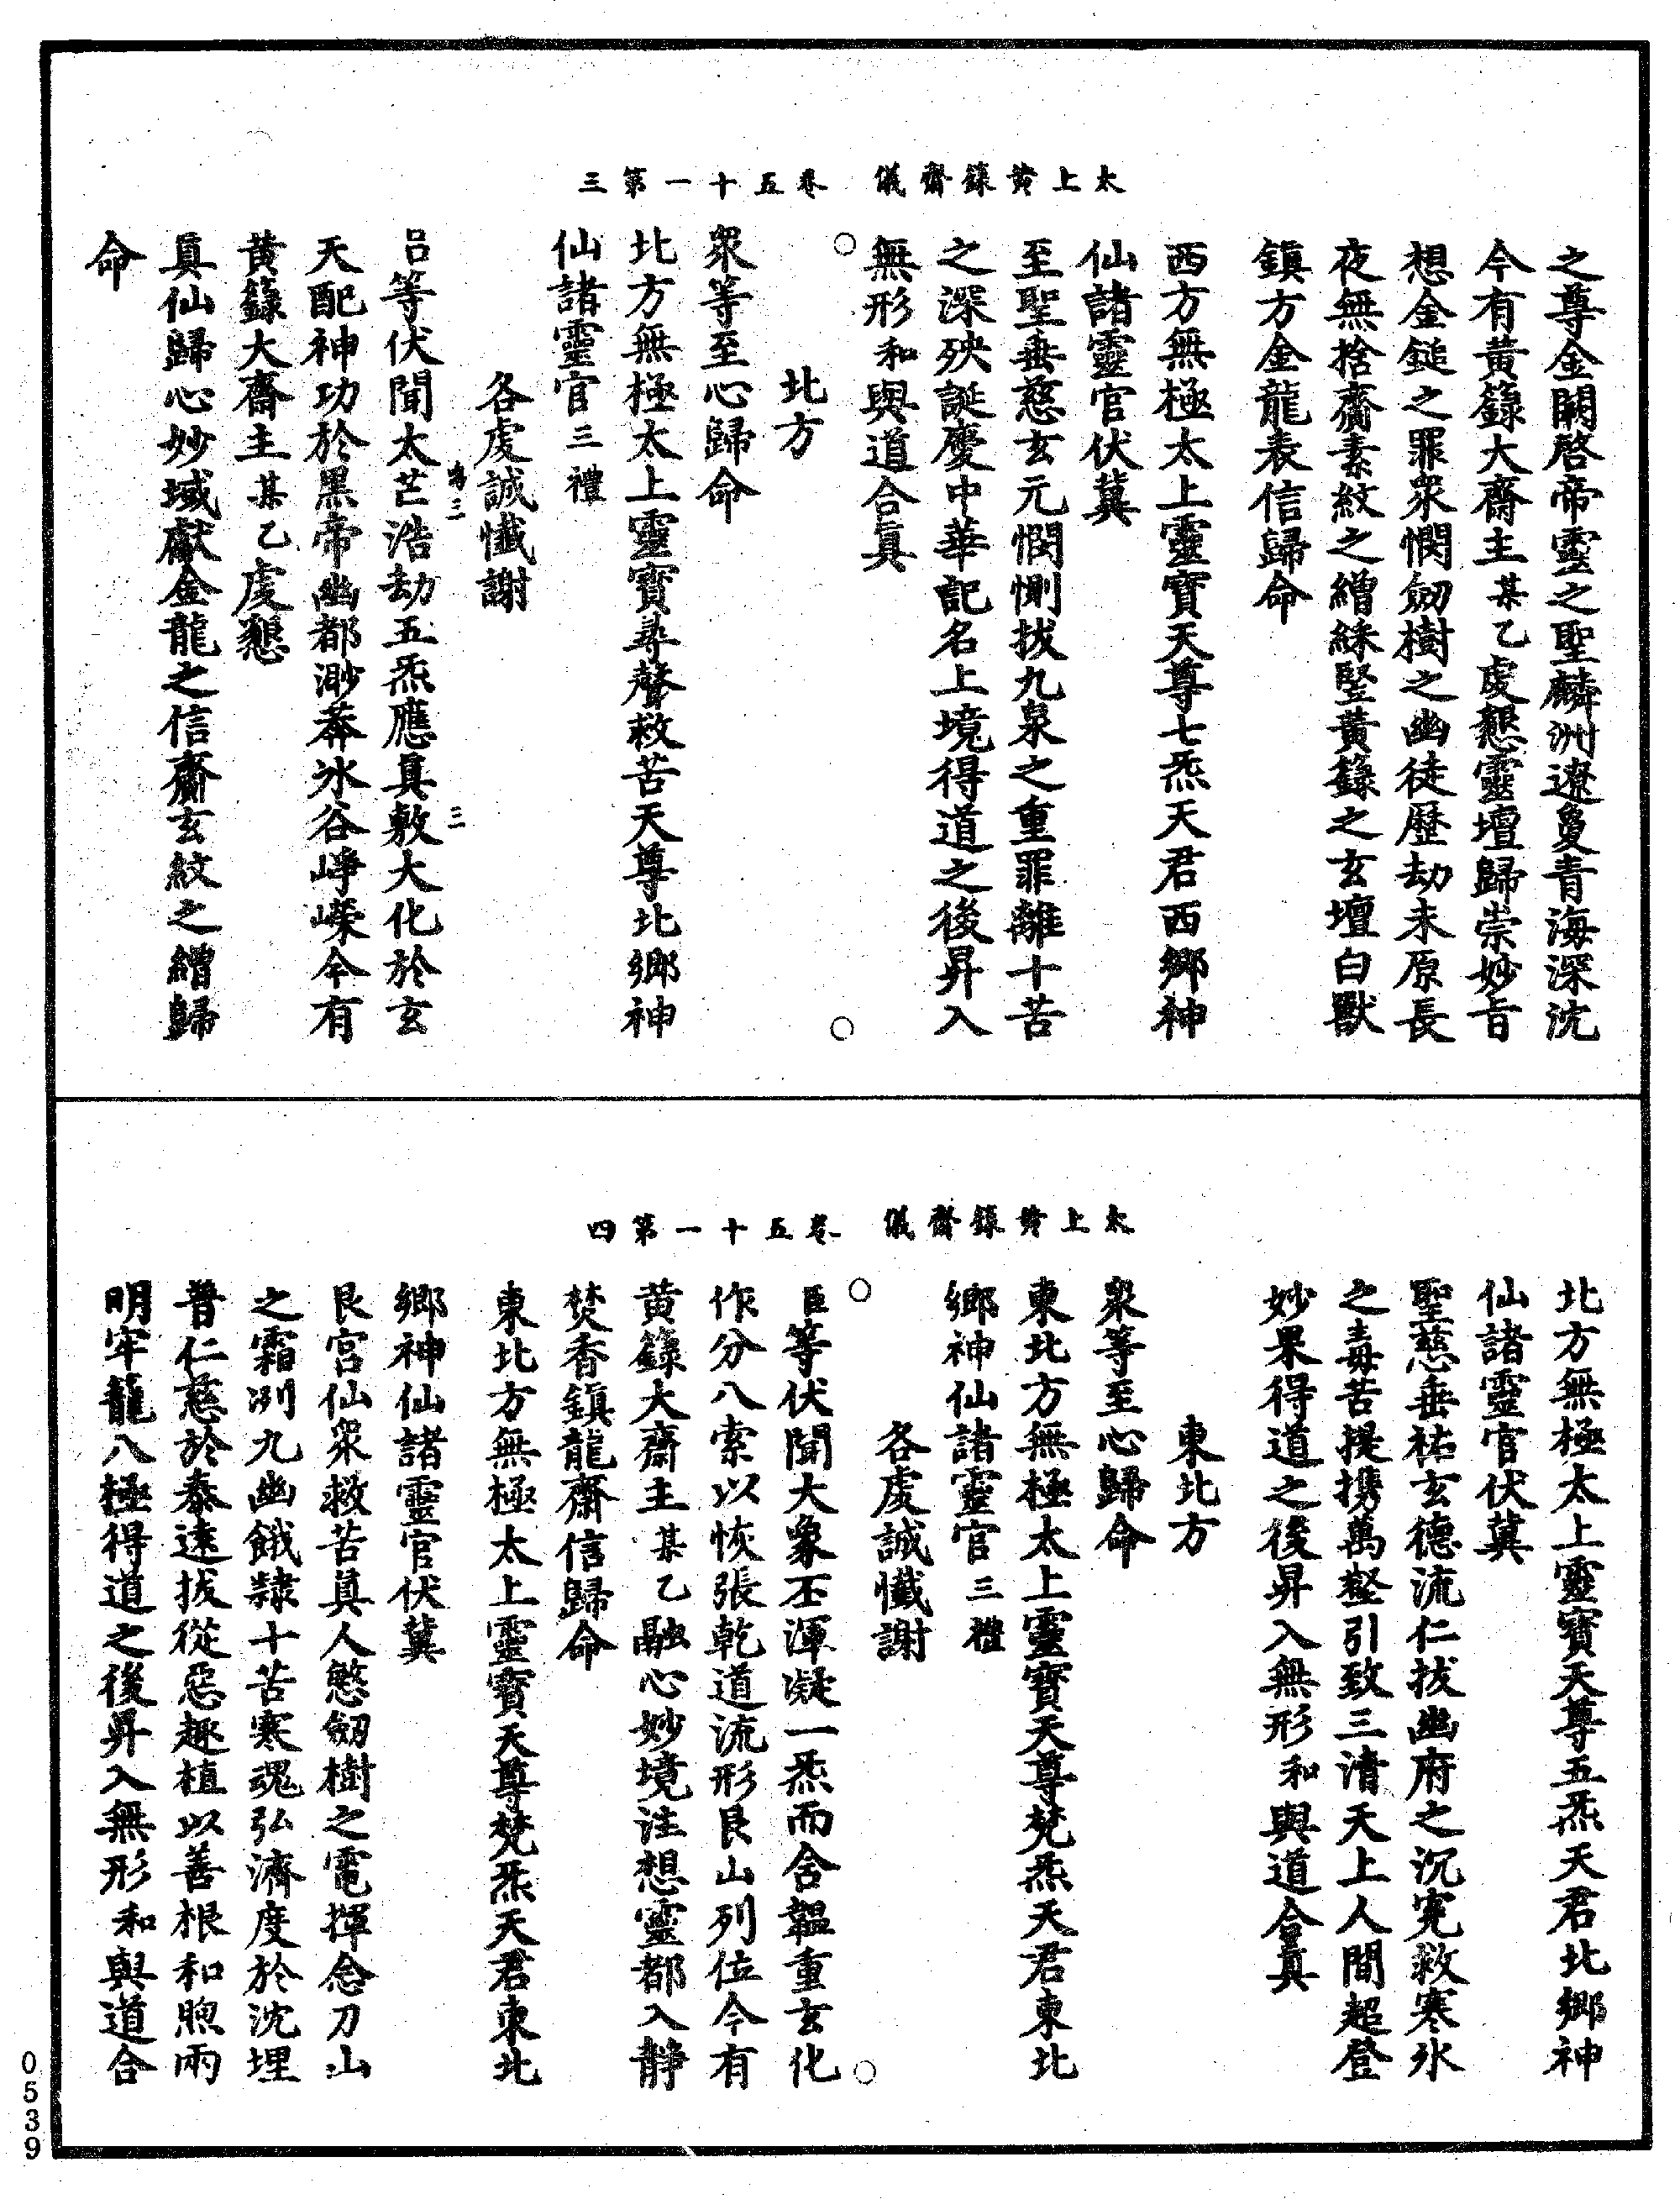 太上黄籙齋儀　卷五十一第三
之尊金闕啓帝靈之聖麟洲遼敻青海深沈
今有黄籙大齋主某乙虔懇靈壇歸崇妙旨
想金鎚之罪衆憫劒樹之幽徒歷劫未原長
夜無捨齋素紋之繒綵竪黄籙之玄壇白獸
鎮方金龍表信歸命
西方無極太上靈寶天尊七炁天君西鄉神
仙諸靈官伏冀
至聖垂慈玄元憫惻拔九泉之重罪離十苦
之深殃誕慶中華記名上境得道之後昇入
無形和與道合真
北方
衆等至心歸命
北方無極太上靈寶尋聲救苦天尊北鄉神
仙諸靈官三禮
各虔誠懺謝
三
臣等伏聞太芒浩劫五炁應真敷大化於玄
天配神功於黒帝幽都渺莽冰谷崢嶸今有
黄籙大齋主某乙虔懇
真仙歸心妙域獻金龍之信齎玄紋之繒歸
命
太上黄籙齋儀　卷五十一第四
北方無極太上靈寶天尊五炁天君北鄉神
仙諸靈官伏冀
聖慈垂祐玄德流仁拔幽府之沉寃救寒氷
之毒苦提携萬壑引致三清天上人間超登
妙果得道之後昇入無形和與道合真
東北方
衆等至心歸命
東北方無極太上靈寶天尊梵炁天君東北
鄉神仙諸靈官三禮
各虔誠懺謝
臣等伏聞大象丕渾凝一炁而含韞重玄化
作分八索以恢張乾道流形艮山列位今有
黄籙大齋主某乙融心妙境注想靈都入靜
焚香鎮龍齋信歸命
東北方無極太上靈寶天尊梵炁天君東北
鄉神仙諸靈官伏冀
艮宮仙衆救苦真人慜劒樹之電揮念刀山
之霜冽九幽餓隸十苦寒魂弘濟度於沈埋
普仁慈於泰遠拔從惡趣植以善根和煦雨
明牢籠八極得道之後昇入無形和與道合
0539